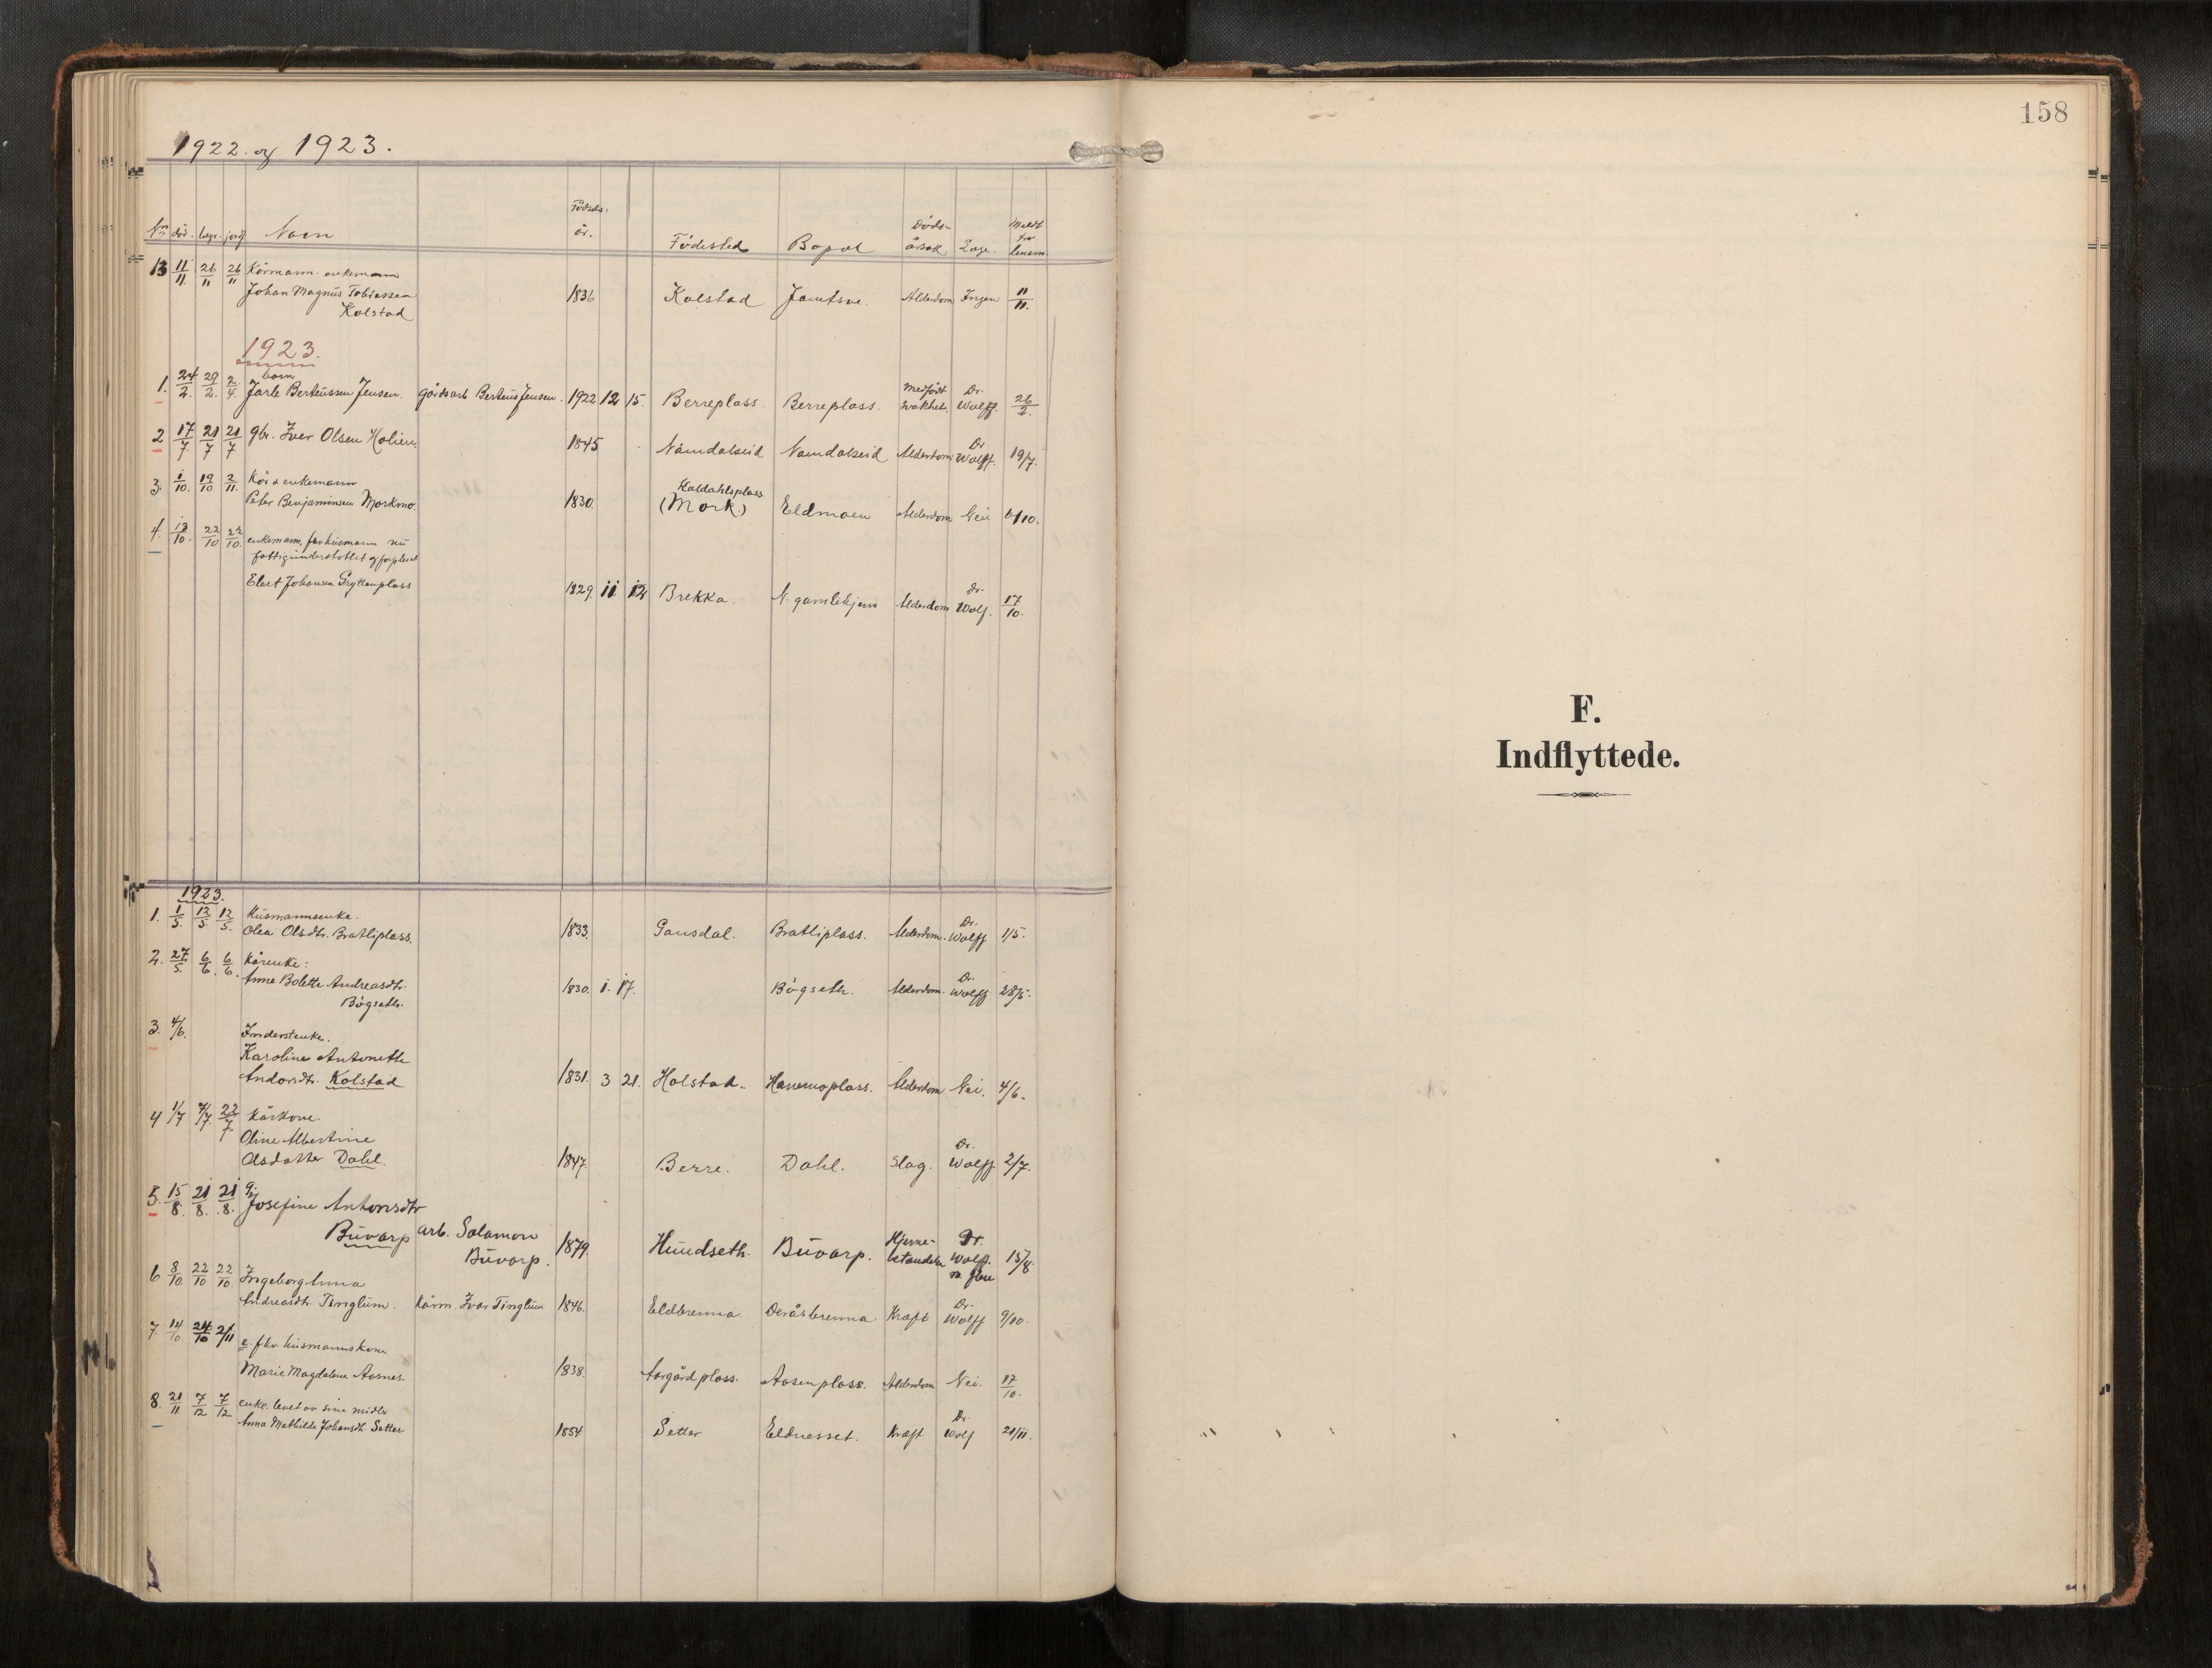 1922 og 1923.
158
Nr. död. begr. jordf. Navn Födsels-år. Födested Bopæl Döds-årsak Læge. Meldt fra lensm.
13 11/11. 26/11 26/11 Kårmann. enkemann
Johan Magnus Tobiassen 1836 Kolstad Alderdom Ingen 11/11.
Kolstad
1923.
barn
1. 24/2. 2/4. Jarle Berteussen Jensen. gårdsarb Berteus Jensen. 1922 12 15. Berreplass. Berreplass. Medfödt svakhet. Dr. Wolff. 26/2.
2 17/7. 21/7 21/7 gbr. Iver Olsen 1845 Namdalseid Namdalseid Alderdom Dr Wolff. 19/7.
3. 1/10. 19/10 2/11. enkemann
Peter Benjaminsen Morkmo. 1830. Kaldahlsplass (Mork) Eldmoen Alderdom Nei
4. 22/10 22/10. enkemann, fhv husmann nu
fattigunderstöttet og forpleiet
Elert Johansen Gryttenplass 1829. 11 12 Brekka. N. gamlehjem Alderdom Dr. Wolf. 17/10.
F.
Indflyttede.
1923.
1. 1/5. 12/5. 12/5. Husmannsenke.
Olea Olsdtr. Bratliplass. 1833. Gansdal. Bratliplass. Alderdom. Dr. Wolff 1/5.
2. 27/5. 6/6. 6/6. Kårenke:
Anne Bolette Andreasdtr. 1830. 1. 17. Bögseth. Alderdom. Dr. Wolff 28/5.
Bögseth.
3. 4/6. Inderstenke.
Karoline Antonette
Andorsdtr. Kolstad 1831. 3 21. Holstad. Hanemoplass. Alderdom Nei. 4/6.
4 1/7 7/7. 22/7. Kårkone.
Oline Albertine
Olsdatter Dahl. 1847. Berre. Dahl. Slag. Dr. Wolff 2/7.
5. 15/8. 21/8. 21/8. g.
Josefine Antonsdtr
Buvarp arb. Salamon Buvarp. 1879. Hundseth. Buvarp. Hjerne-betendelse Dr. Wolff. m. flere 15/8.
6 8/10. 22/10 22/10. Ingeborg Anna
Andreasdtr. Tinglum. Kårm. Ivar Tinglum 1846. Eldbrenna Deråsbrenna Kræft Dr. Wolff 9/10.
7. 14/10. 24/10 2/11 e. fhv. husmannskone
Marie Magdalene Aasnes. 1838. Aargårdplass. Aasenplass. Alderdom Nei. 17/10.
8. 21/11 7/12 7/12 enke. levet av sine midler
Anna Mathilde Johansdtr. Sætter 1854 Setter Eldnesset. Kræft Dr. Wolf 21/11.